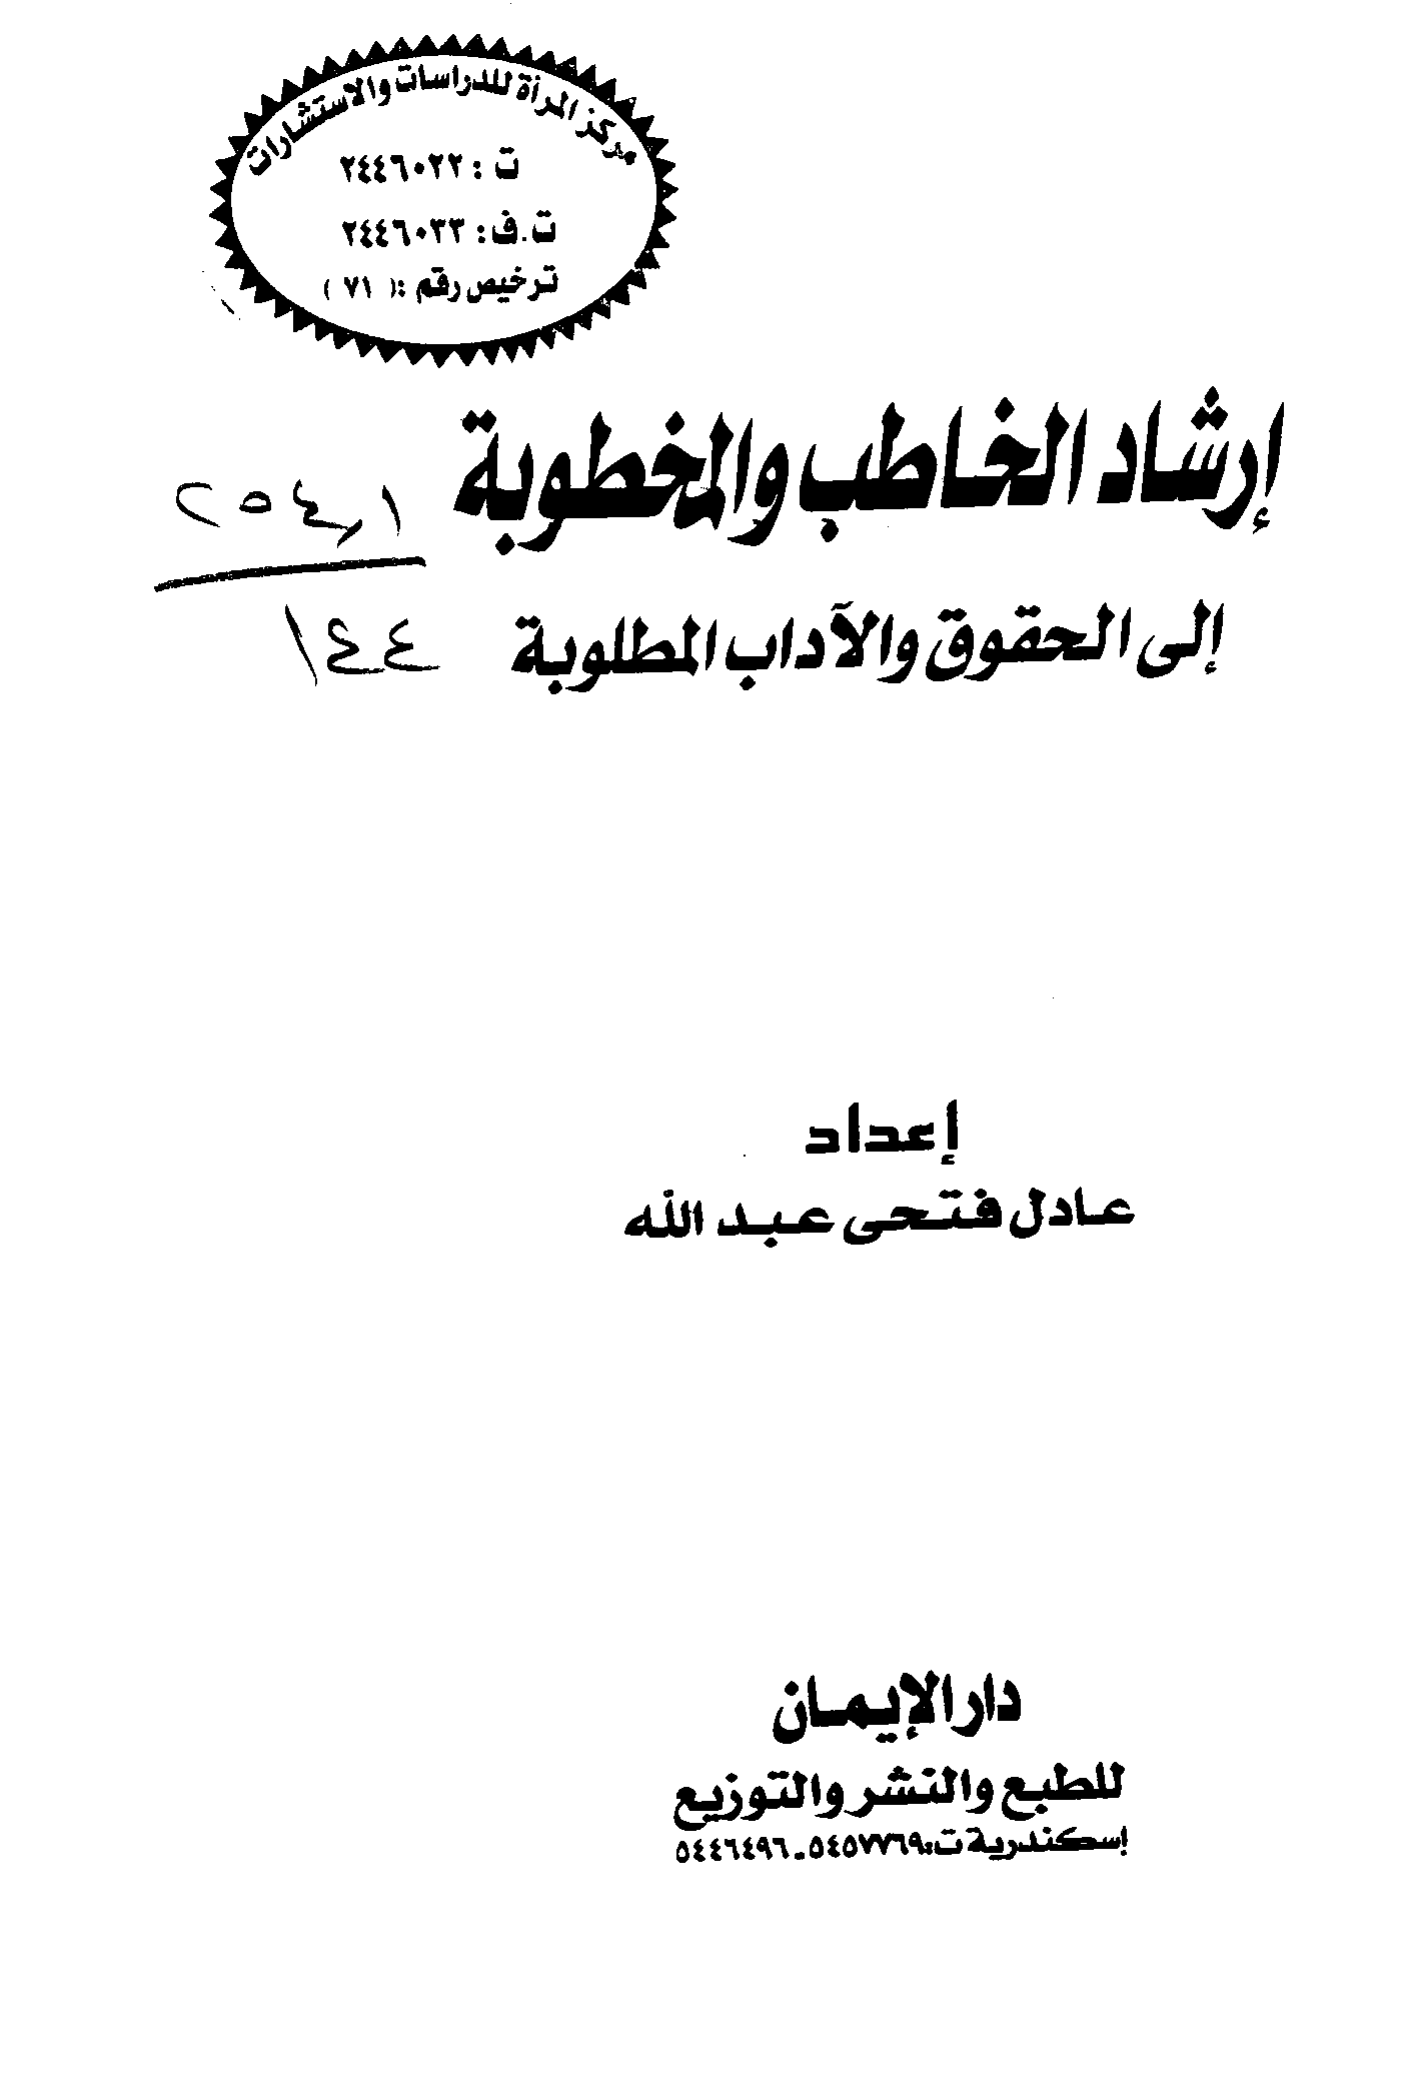 مركز المرأة للدراسات والاستشارات
ت : ٢٤٤٦٠٢٢
ت.ف: ٢٤٤٦٠٣٣
ترخيص رقم :( ٧١ )
إرشاد الخاطب والمخطوبة
إلى الحقوق والآداب المطلوبة
١٤٤
إعداد
عادل فتحى عبد الله
دار الإيمان
للطبع والنشر والتوزيع
إسكندرية ت:٥٤٥٧٧٦٩ـ٥٤٤٦٤٩٦